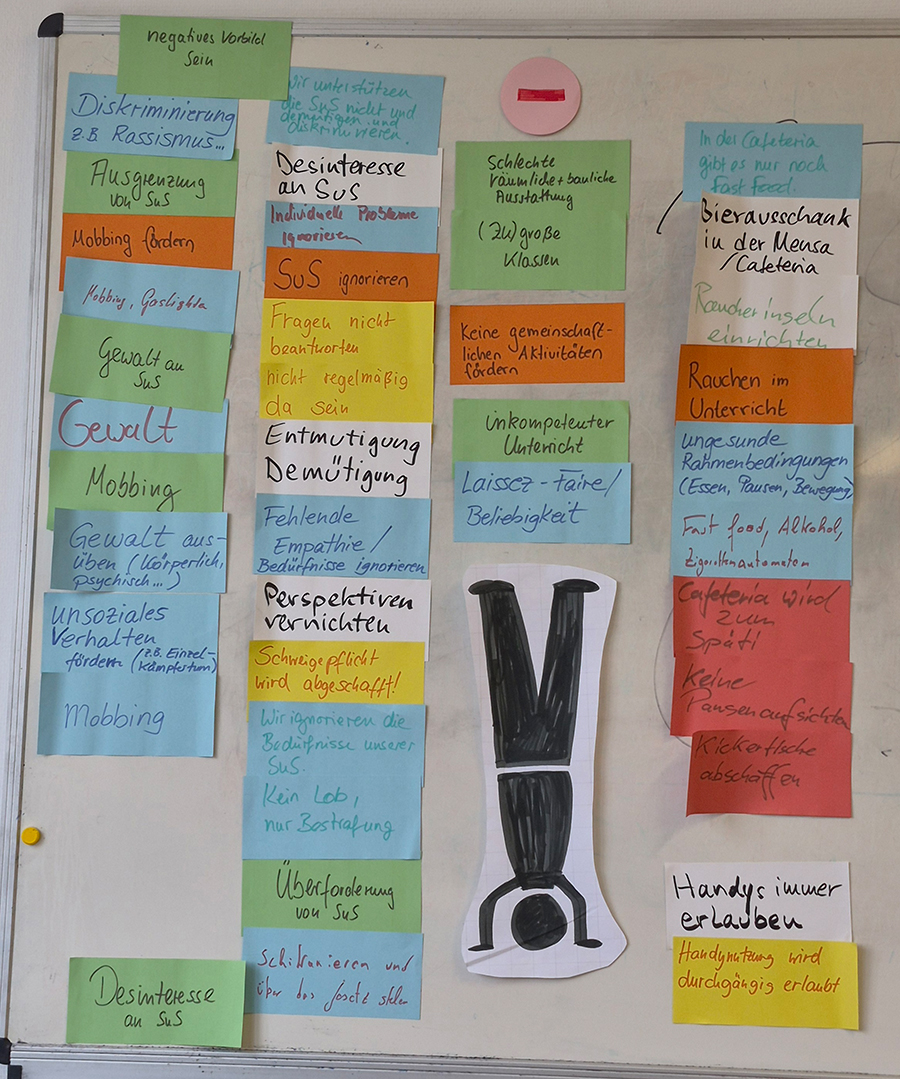 negatives Vorbild
sein
Diskriminierung
z.B Rassismus...
Ausgrenzung
von SuS
Mobbing fördern
Mobbing, Gaslighten
Gewalt an
SuS
Gewalt
Mobbing
Gewalt aus-
üben (körperlich,
psychisch...)
unsoziales
Verhalten
fördern (z.B. Einzel-
kämpfertum)
Mobbing
Desinteresse
an SuS
Wir unterstützen
die SuS nicht und
demütigen und
diskriminieren.
Desinteresse
an SuS
Individuelle Probleme
ignorieren
SuS ignorieren
Fragen nicht
beantworten
nicht regelmäßig
da sein
Entmutigung
Demütigung
Fehlende
Empathie/
Bedürfnisse ignorieren
Perspektiven
vernichten
Schweigepflicht
wird abgeschafft!
Wir ignorieren die
Bedürfnisse unserer
SuS.
Kein Lob,
nur Bestrafung
Überforderung
von SuS
Schikanieren und
über das
Schlechte
räumliche + bauliche
Ausstattung
(Zu) große
Klassen
Keine gemeinschaft-
lichen Aktivitäten
fördern
inkompetenter
Unterricht
Laissez-Faire/
Beliebigkeit
In der Cafeteria
gibt es nur noch
Fast Food.
Bierausschank
in der Mensa
/Cafeteria
Raucherinseln
einrichten
Rauchen im
Unterricht
ungesunde
Rahmenbedingungen
(Essen, Pausen, Bewegung)
Fast food, Alkohol,
Zigarettenautomaten
Cafeteria wird
zum
Späti
Keine
Pausenaufsichten
Kickertische
abschaffen
Handys immer
erlauben
Handynutzung wird
durchgängig erlaubt